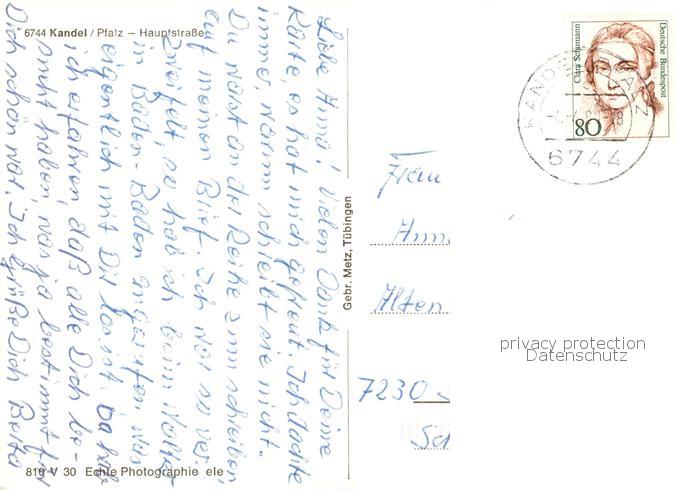 6744 Kandel / Pfalz – Hauptstraße
Liebe Anna! Vielen Dank für Deine
Karte es hat mich gefreut. Ich dachte
immer, warum schreibt sie nicht.
Du warst an der Reihe zum schreiben,
auf meinen Brief. Ich war so ver-
zweifelt, so hab ich beim
in Baden-Baden angerufen, was
eigentlich mit Dir los ist. Da hab
ich erfahren, daß alle Dich be-
sucht haben, was ja bestimmt für
Dich schön war. Ich grüße Dich Berta
819 V 30 Echte Photographie ele
Gebr. Metz, Tübingen
Clara Schumann
Deutsche Bundespost
80
KANDEL, PFALZ
6744
Frau
Anna
Alten
7230
privacy protection
Datenschutz